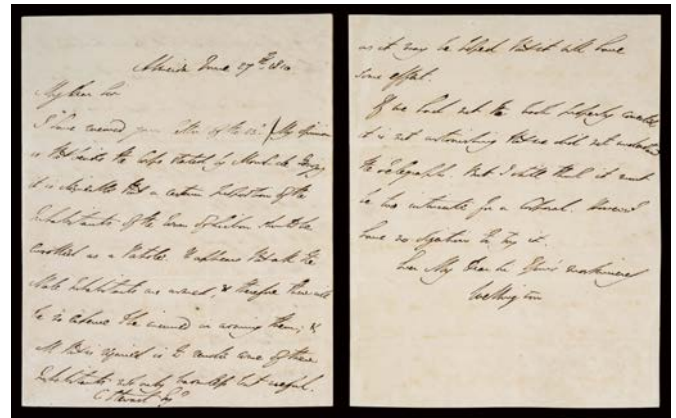 Almeida June 27th 1810
My Dear Sir
I have received your letter of the 23. My opinion
is that besides the Corps stated by Mons. de
it is desirable that a certain proportion of the
Inhabitants of the Town of Lisbon should be
enrolled as a It appears that all the
Male Inhabitants are armed, & therefore there will
be no expence incurred in arming them; &
all that is required is to render some of these
Inhabitants not only harmless but useful.
C. Stuart Esq
as it may be hoped that it will have
some effect.
If we had not the book properly corrected
it is not astonishing that we did not understand
the Telegraph. But I still think it must
be too intricate for a However I
have no objection to try it.
Ever My Dear Sir Yours most sincerely
Wellington